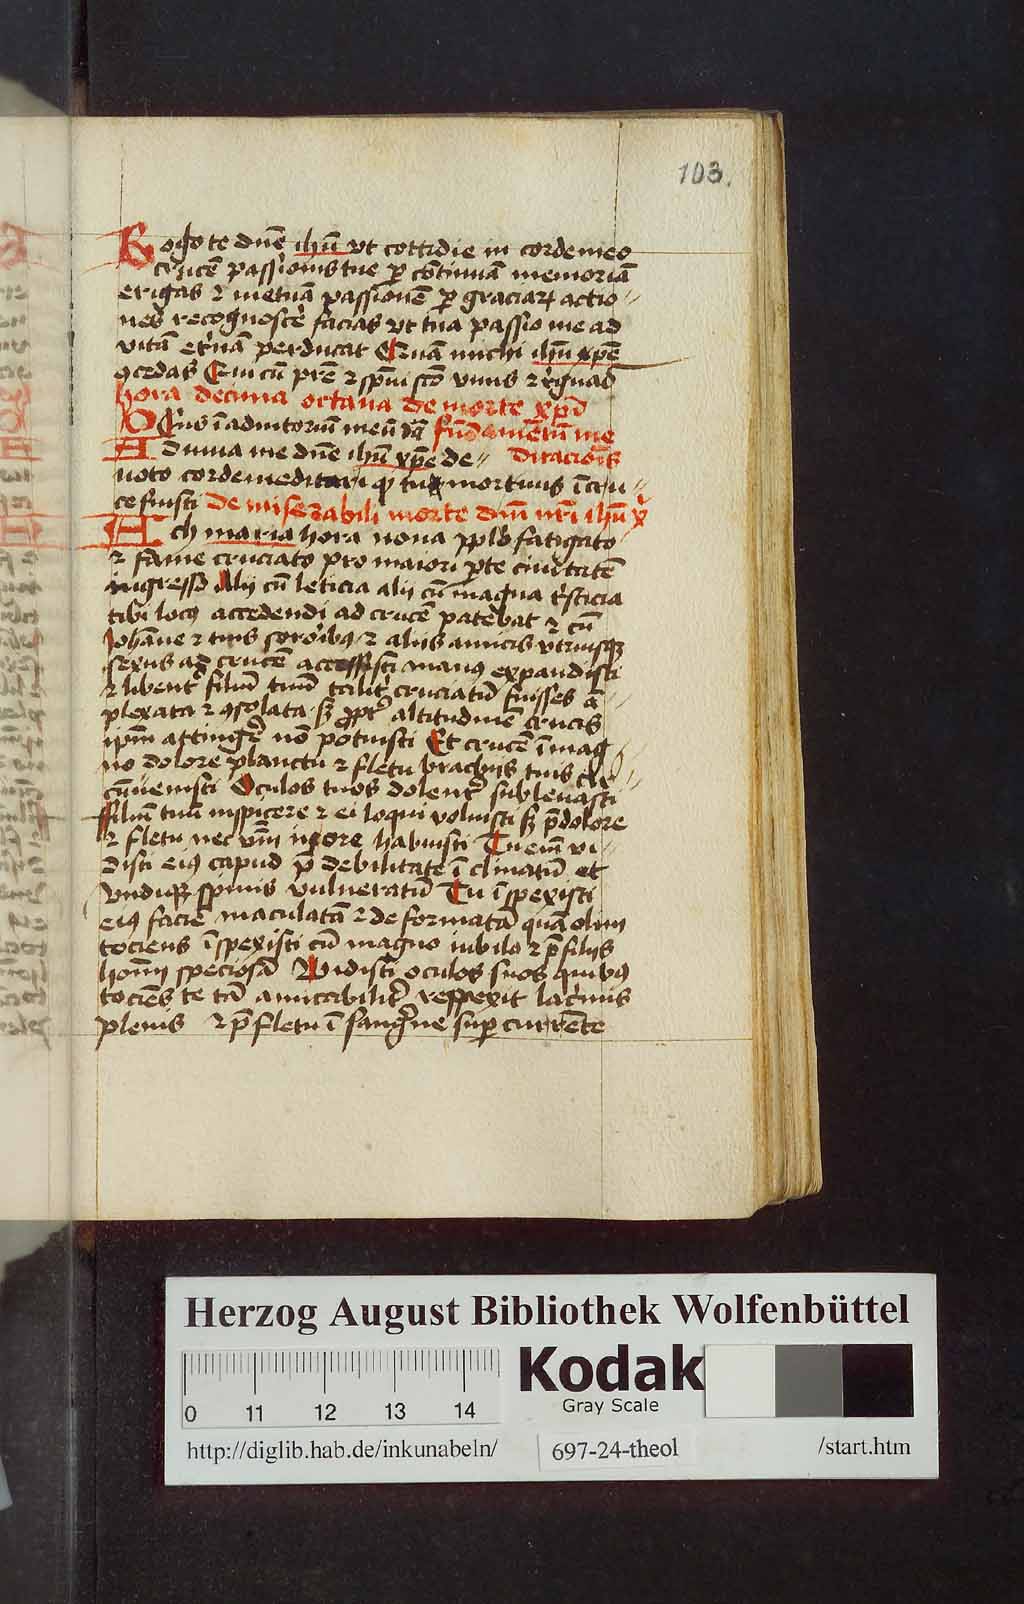 103.
Rogo te dn̄e ihū vt cottidie in corde meo
crucē passionis tue ꝑ cōtinuā memoriā
erigas ⁊ in etnā passionē ꝑ graciaꝝ actio-
nes recognoscē facias vt tua passio me ad
vitā et̾nā perducat Quā michi ihū xp̄e
ꝯcedas Qui cū pr̄e ⁊ sp̄u sc̄o viuis ⁊ r̾gnas
hora decima octaua de morte xp̄i
Deus ī adiutoriū meū fūdamētū me
Adiuua me dn̄e ihū xp̄e de- ditaciōis
uoto corde meditari ꝙ tu mortuus ī cru-
ce fuisti De miserabili morte dn̄i nr̄i ihū x̄
Ach maria hora nona pplō fatigato
⁊ fame cruciato pro maiori ꝑte ciuitatē
ingresso Alij cū leticia alij cū magna t̾sticia
tibi locꝰ accedendi ad crucē patebat ⁊ cū
Johāne ⁊ tuis sororibꝰ ⁊ alijs amicis vtriusqꝫ
sexus ad crucē accessisti manꝰ expandisti
⁊ libent̾ filiū tuū talit̾ cruciatū fuisses ā-
plexata ⁊ ꝯsolata sꝫ ꝓpt̾ altitudinē crucis
ipm̄ attinger̾ nō potuisti Et crucē ī mag
no dolore planctu ⁊ fletu brachijs tuis cir-
cūuenisti Oculos tuos dolent̾ subleuasti
filiū tuū inspicere ⁊ ei loqui voluisti sꝫ p̄ dolore
⁊ fletu nec vnū in ore habuisti Tu em̄ vi-
disti eiꝰ capud p̄ debilitate ī clinatū et
vndiqꝫ spinis vulneratū Tu īspexisti
eiꝰ faciē maculatā ⁊ deformatā quā olim
tociens īspexisti cū magno iubilo ⁊ p̄ filijs
hoīm speciosā Vidisti oculos suos quibꝰ
tociēs te tā amicabilit̾ respexit lac̾mis
plenis ⁊ p̄ fletu ī sang̾ne suꝑcurrēte
Herzog August Bibliothek Wolfenbüttel
0 11 12 13 14
Kodak
Gray Scale
http://diglib.hab.de/inkunabeln/ 697-24-theol /start.htm